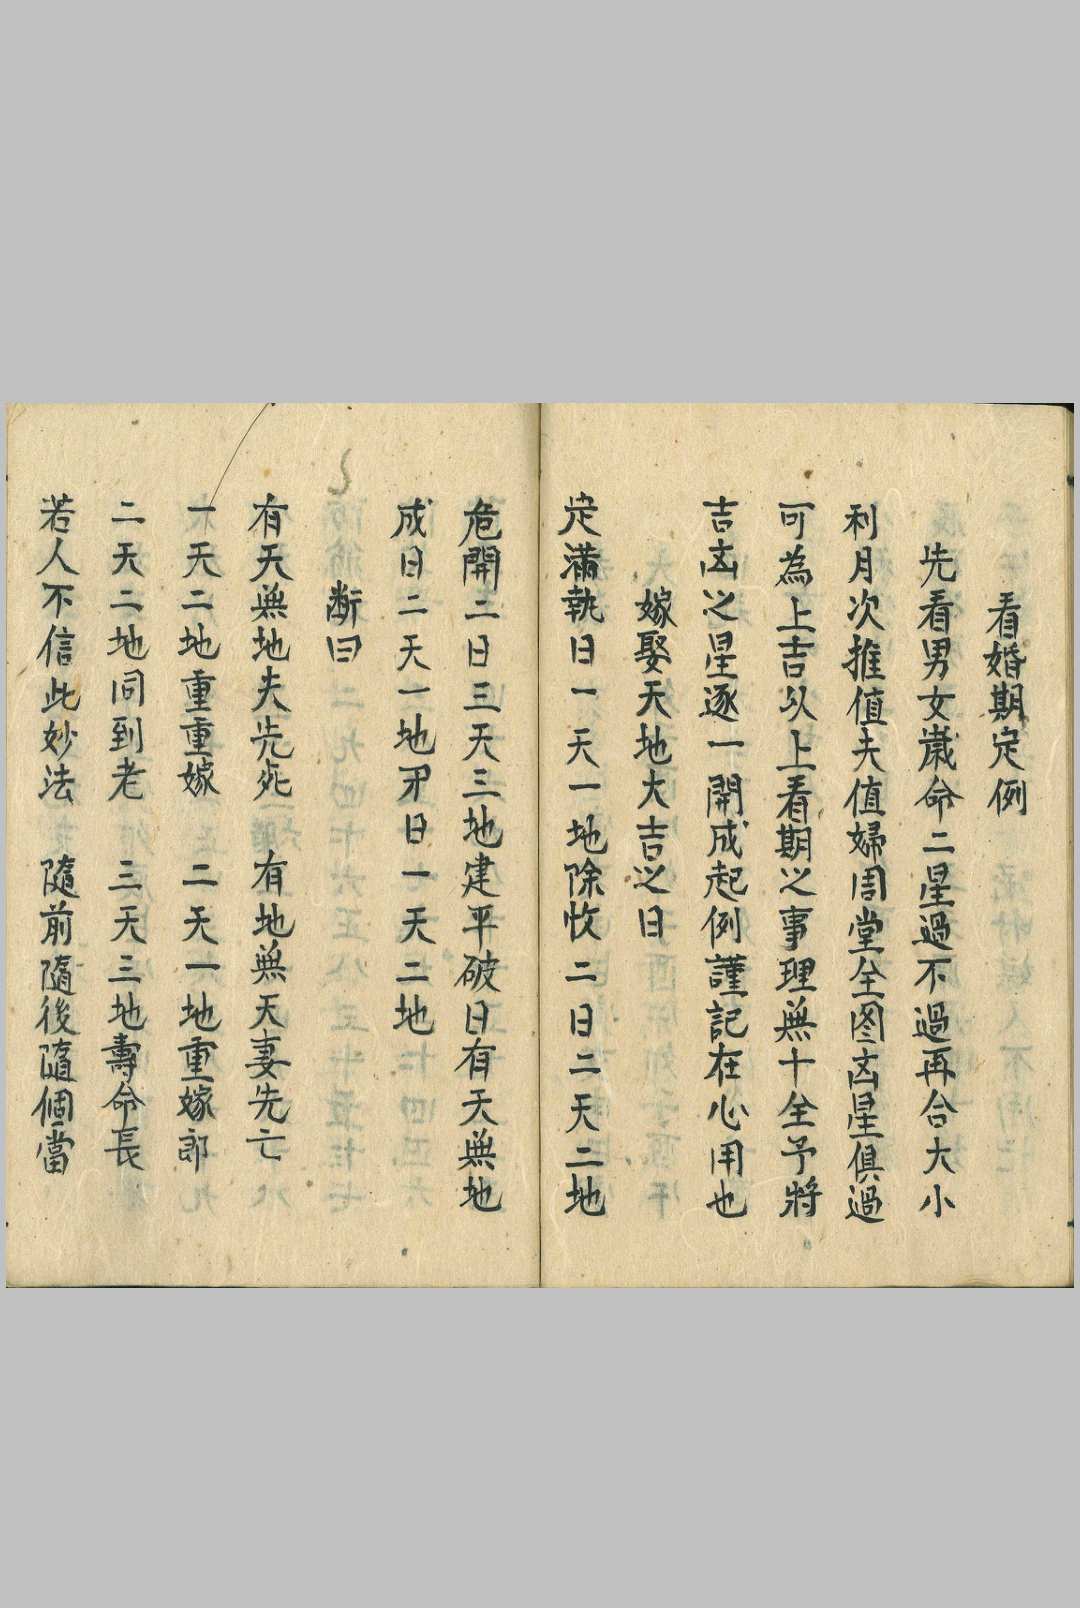 看婚期定例
先看男女歲命二星過不過再合大小
利月次推值夫值婦周堂全图凶星俱過
可為上吉以上看期之事理無十全予將
吉凶之星逐一開成起例謹記在心用也
嫁娶天地大吉之日
定滿執日一天一地除收二日二天二地
危開二日三天三地建平破日有天無地
成日二天一地閉日一天二地
断曰
有天無地夫先死 有地無天妻先亡
一天二地重重嫁 二天一地重嫁郎
二天二地同到老 三天三地壽命長
若人不信此妙法 隨前隨後隨個當